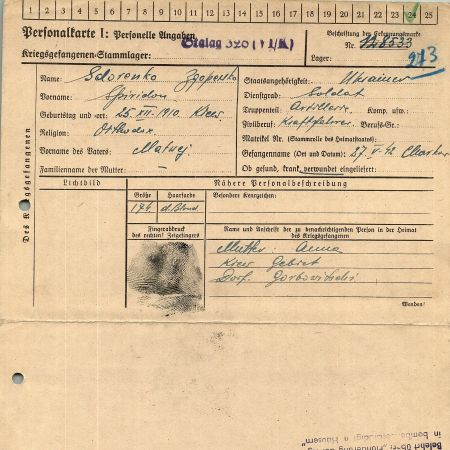 1 2 3 4 5 6 7 8 9 10 11 12 13 14 15 16 17 18 19 20 21 22 23 24 25
Personalkarte I: Personelle Angaben
Kriegsgefangenen-Stammlager: Stalag 326 (VI/K)
Beschriftung der Erkennungsmarke
Nr. 128533
Lager: 273
Des Kriegsgefangenen
Name: Sdorenko Здоренко
Vorname: Spiridon
Geburtstag und -ort: 25. XII. 1910. Kiew
Religion: Orthodox.
Vorname des Vaters: Matwej
Familienname der Mutter: —
Staatsangehörigkeit: Ukrainer
Dienstgrad: Soldat
Truppenteil: Artillerie Komp. usw.:
Zivilberuf: Kraftfahrer Berufs-Gr.:
Matrikel Nr. (Stammrolle des Heimatstaates):
Gefangennahme (Ort und Datum): 27. V. 42
Ob gesund, krank, verwundet eingeliefert:
Lichtbild
Nähere Personalbeschreibung
Größe Haarfarbe Besondere Kennzeichen:
174 d. Blond
Fingerabdruck
des rechten! Zeigefingers
Name und Anschrift der zu benachrichtigenden Person in der Heimat
des Kriegsgefangenen
Mutter: Anna
Kiew Gebiet
Dorf.
Wenden!